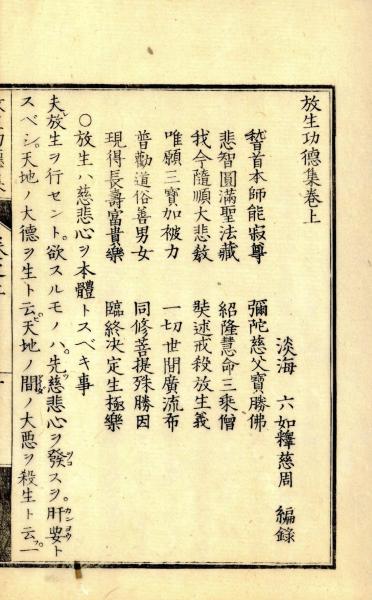 放生功德集卷上
淡海 六如釋慈周 編錄
稽首本師能寂尊 彌陀慈父寶勝佛
悲智圓滿聖法藏 紹隆慧命三乘僧
我今隨順大悲教 奘述戒殺放生義
唯願三寶加被力 一切世間廣流布
普勸道俗善男女 同修菩提殊勝因
現得長壽富貴樂 臨終決定生極樂
○放生ハ慈悲心ヲ本體トスベキ事
夫放生ヲ行セント欲スルモノハ先慈悲心ヲ發スヲ肝要ト
スベシ天地ノ大德ヲ生ト云ピ天地ノ間ノ大惡ヲ殺生ト云一